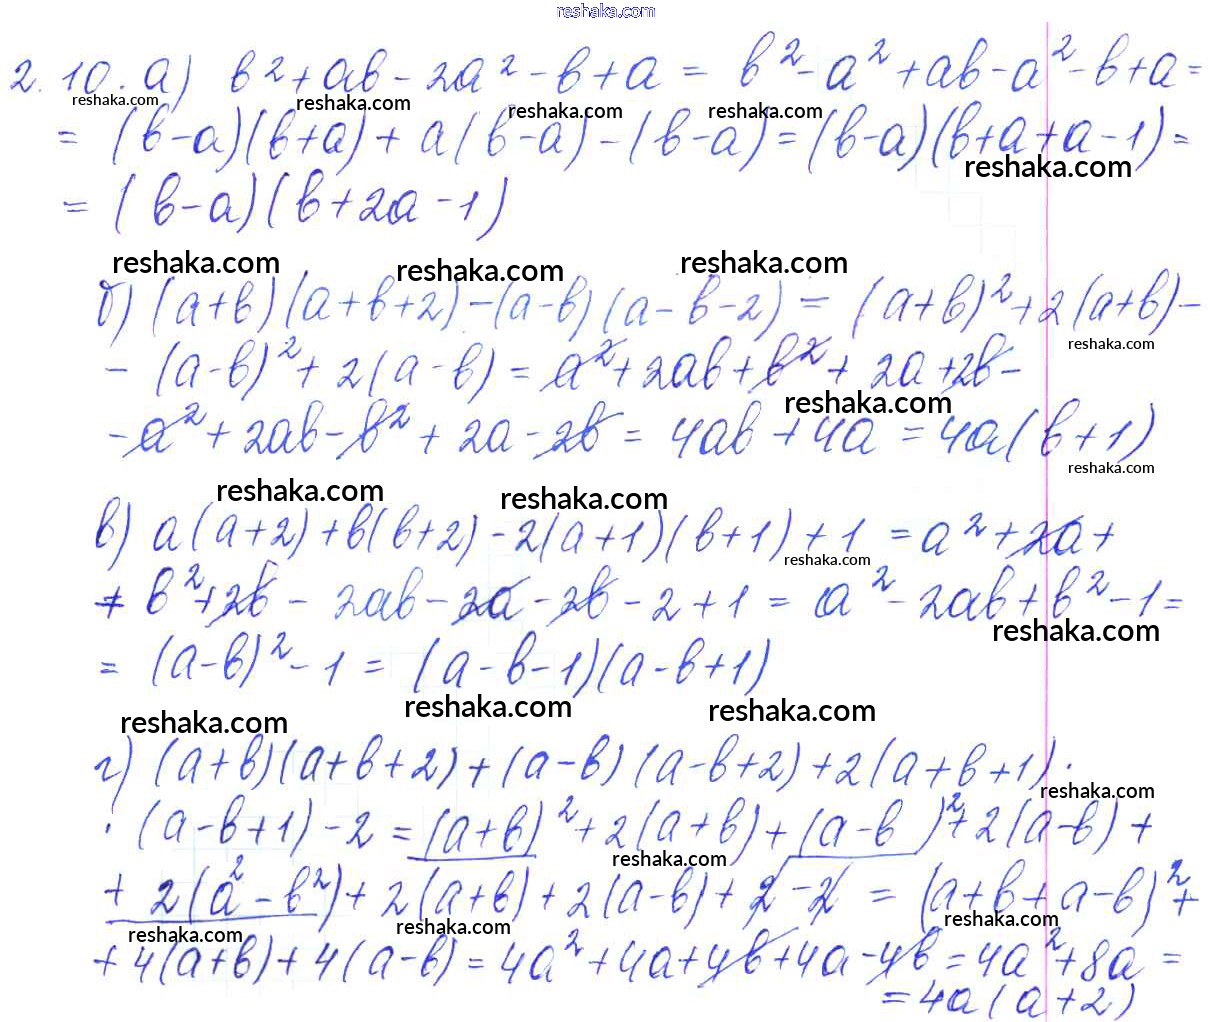 reshaka.com
2.10. а) b² + ab - 2a² - b + a = b² - a² + ab - a² - b + a =
reshaka.com reshaka.com reshaka.com reshaka.com
= (b-a)(b+a) + a(b-a) - (b-a) = (b-a)(b+a+a-1) =
reshaka.com
= (b-a)(b+2a-1)
reshaka.com reshaka.com reshaka.com
б) (a+b)(a+b+2) - (a-b)(a-b-2) = (a+b)² + 2(a+b) -
reshaka.com
- (a-b)² + 2(a-b) = a² + 2ab + b² + 2a + 2b -
reshaka.com
- a² + 2ab - b² + 2a - 2b = 4ab + 4a = 4a(b+1)
reshaka.com
reshaka.com reshaka.com
в) a(a+2) + b(b+2) - 2(a+1)(b+1) + 1 = a² + 2a +
reshaka.com
+ b² + 2b - 2ab - 2a - 2b - 2 + 1 = a² - 2ab + b² - 1 =
reshaka.com
= (a-b)² - 1 = (a-b-1)(a-b+1)
reshaka.com reshaka.com reshaka.com
г) (a+b)(a+b+2) + (a-b)(a-b+2) + 2(a+b+1) ·
reshaka.com
· (a-b+1) - 2 = (a+b)² + 2(a+b) + (a-b)² + 2(a-b) +
reshaka.com
+ 2(a² - b²) + 2(a+b) + 2(a-b) + 2 - 2 = (a+b+a-b)² +
reshaka.com reshaka.com reshaka.com
+ 4(a+b) + 4(a-b) = 4a² + 4a + 4b + 4a - 4b = 4a² + 8a =
= 4a(a+2)